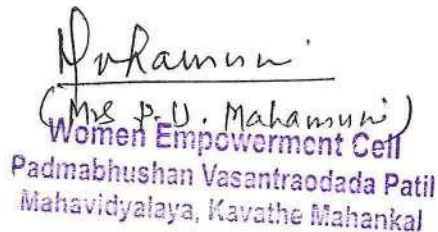 (Mrs P. U. Mahamuni)
Women Empowerment Cell
Padmabhushan Vasantraodada Patil
Mahavidyalaya, Kavathe Mahankal